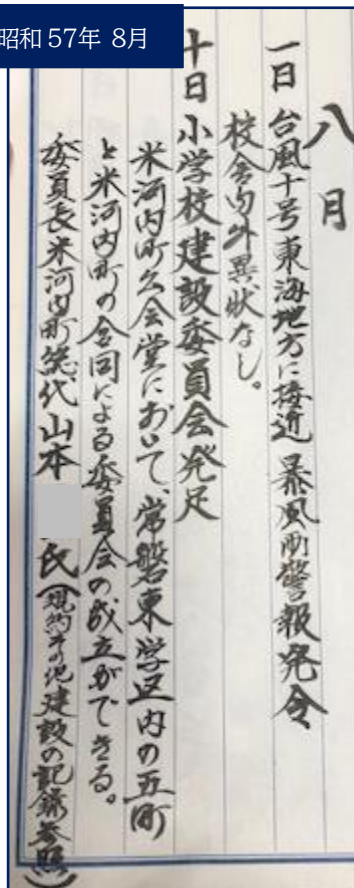 昭和 57年 8月
八月
一日 台風十号東海地方に接近 暴風雨警報発令
校舎内外異状なし。
十日 小学校建設委員会発足
米河内町公会堂において、常磐東学区内の五町
と米河内町の合同による委員会の成立ができる。
委員長米河内町総代山本 氏(規約その他建設の記録参照)